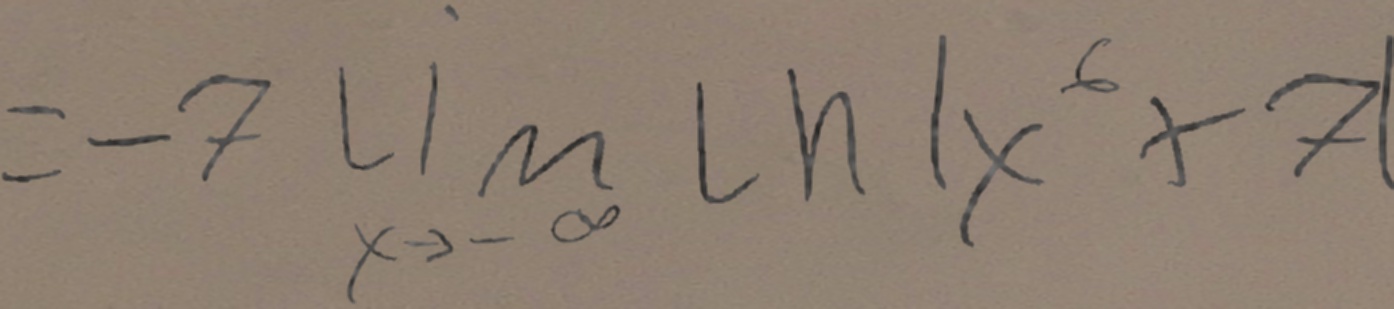 = -7 lim_{x→-∞} ln |x^6 + 7|